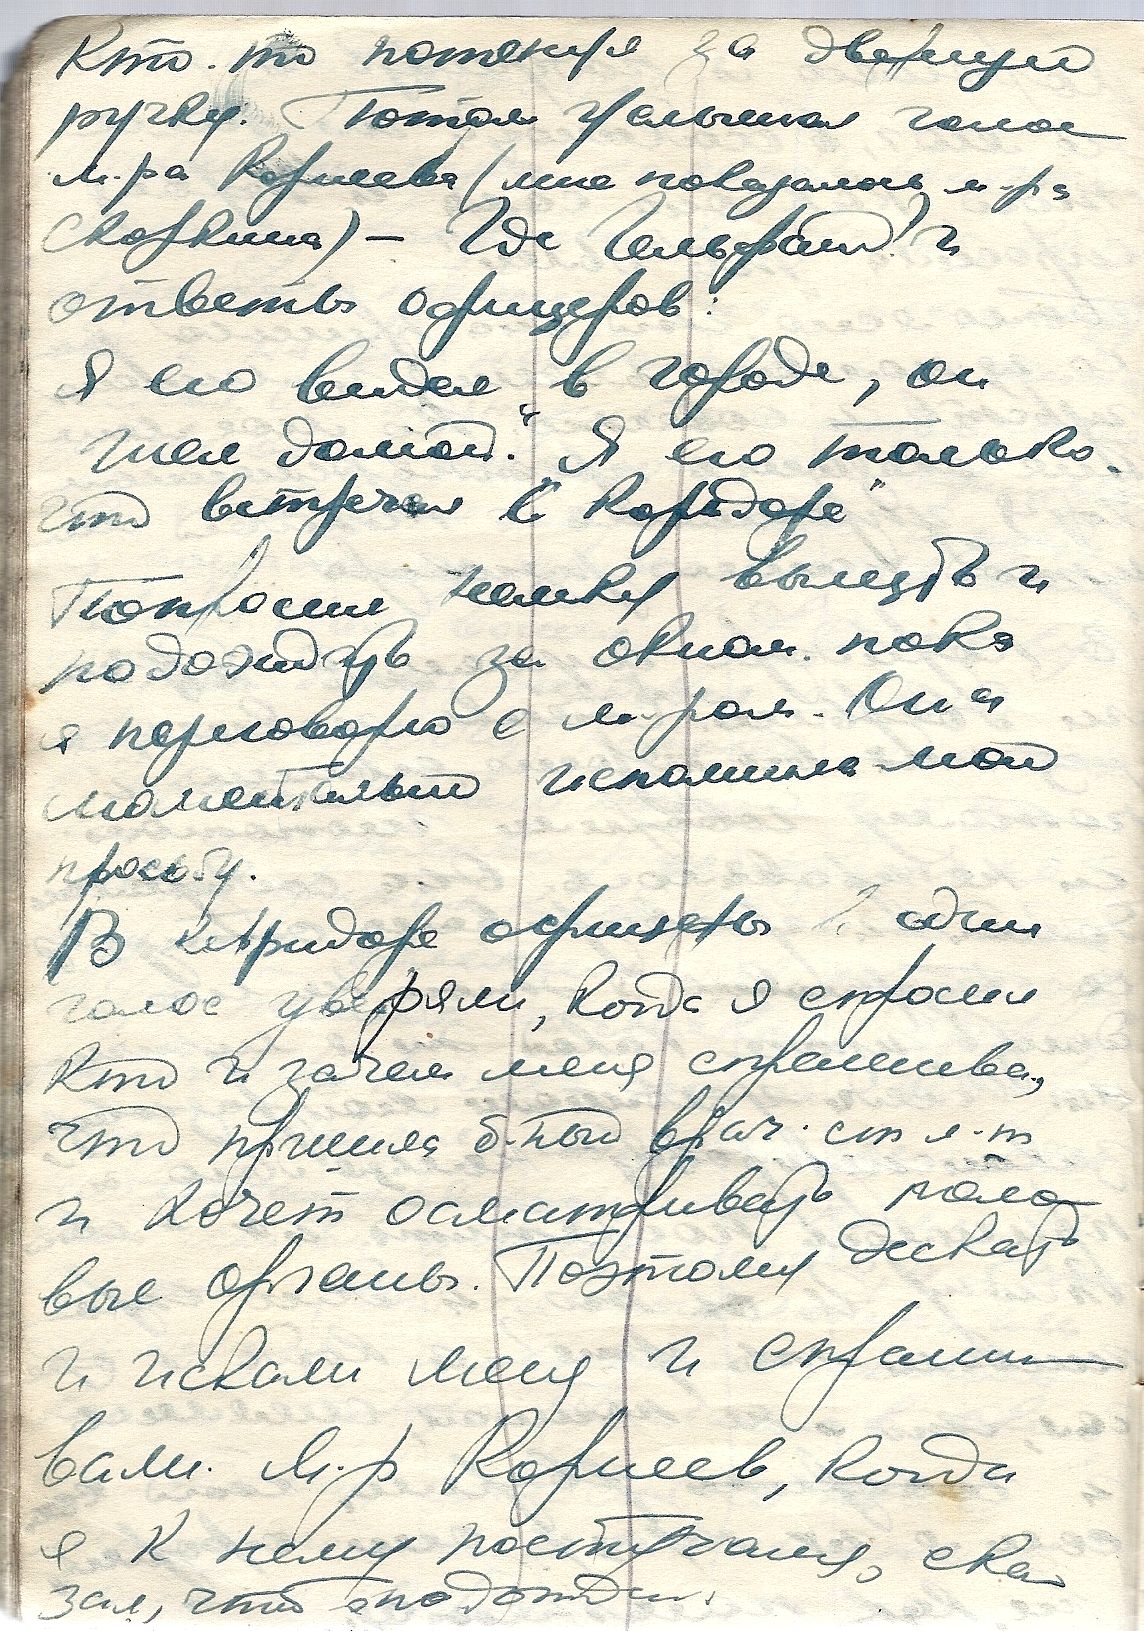 Кто-то потянул за дверную
ручку. Потом услышал голос
м-ра Корнеева (мне показалось м-ра
Скоркина) – Где Гельфанд? и
ответы офицеров:
Я его видел в городе, он
шел домой." "Я его только
что встречал в коридоре"
Попросил немку выйти и
подождать за окном, пока
я переговорю с м-ром. Она
моментально исполнила мою
просьбу.
В коридоре офицеры в один
голос уверяли, когда я спросил
кто и зачем меня спрашивал,
что пришла б-ный врач. ст л-т
и хочет осматривать поло
вые органы. Поэтому дескать
и искали меня и спраши
вали. М-р Корнеев, когда
я к нему постучался, ска
зал, что подожди.